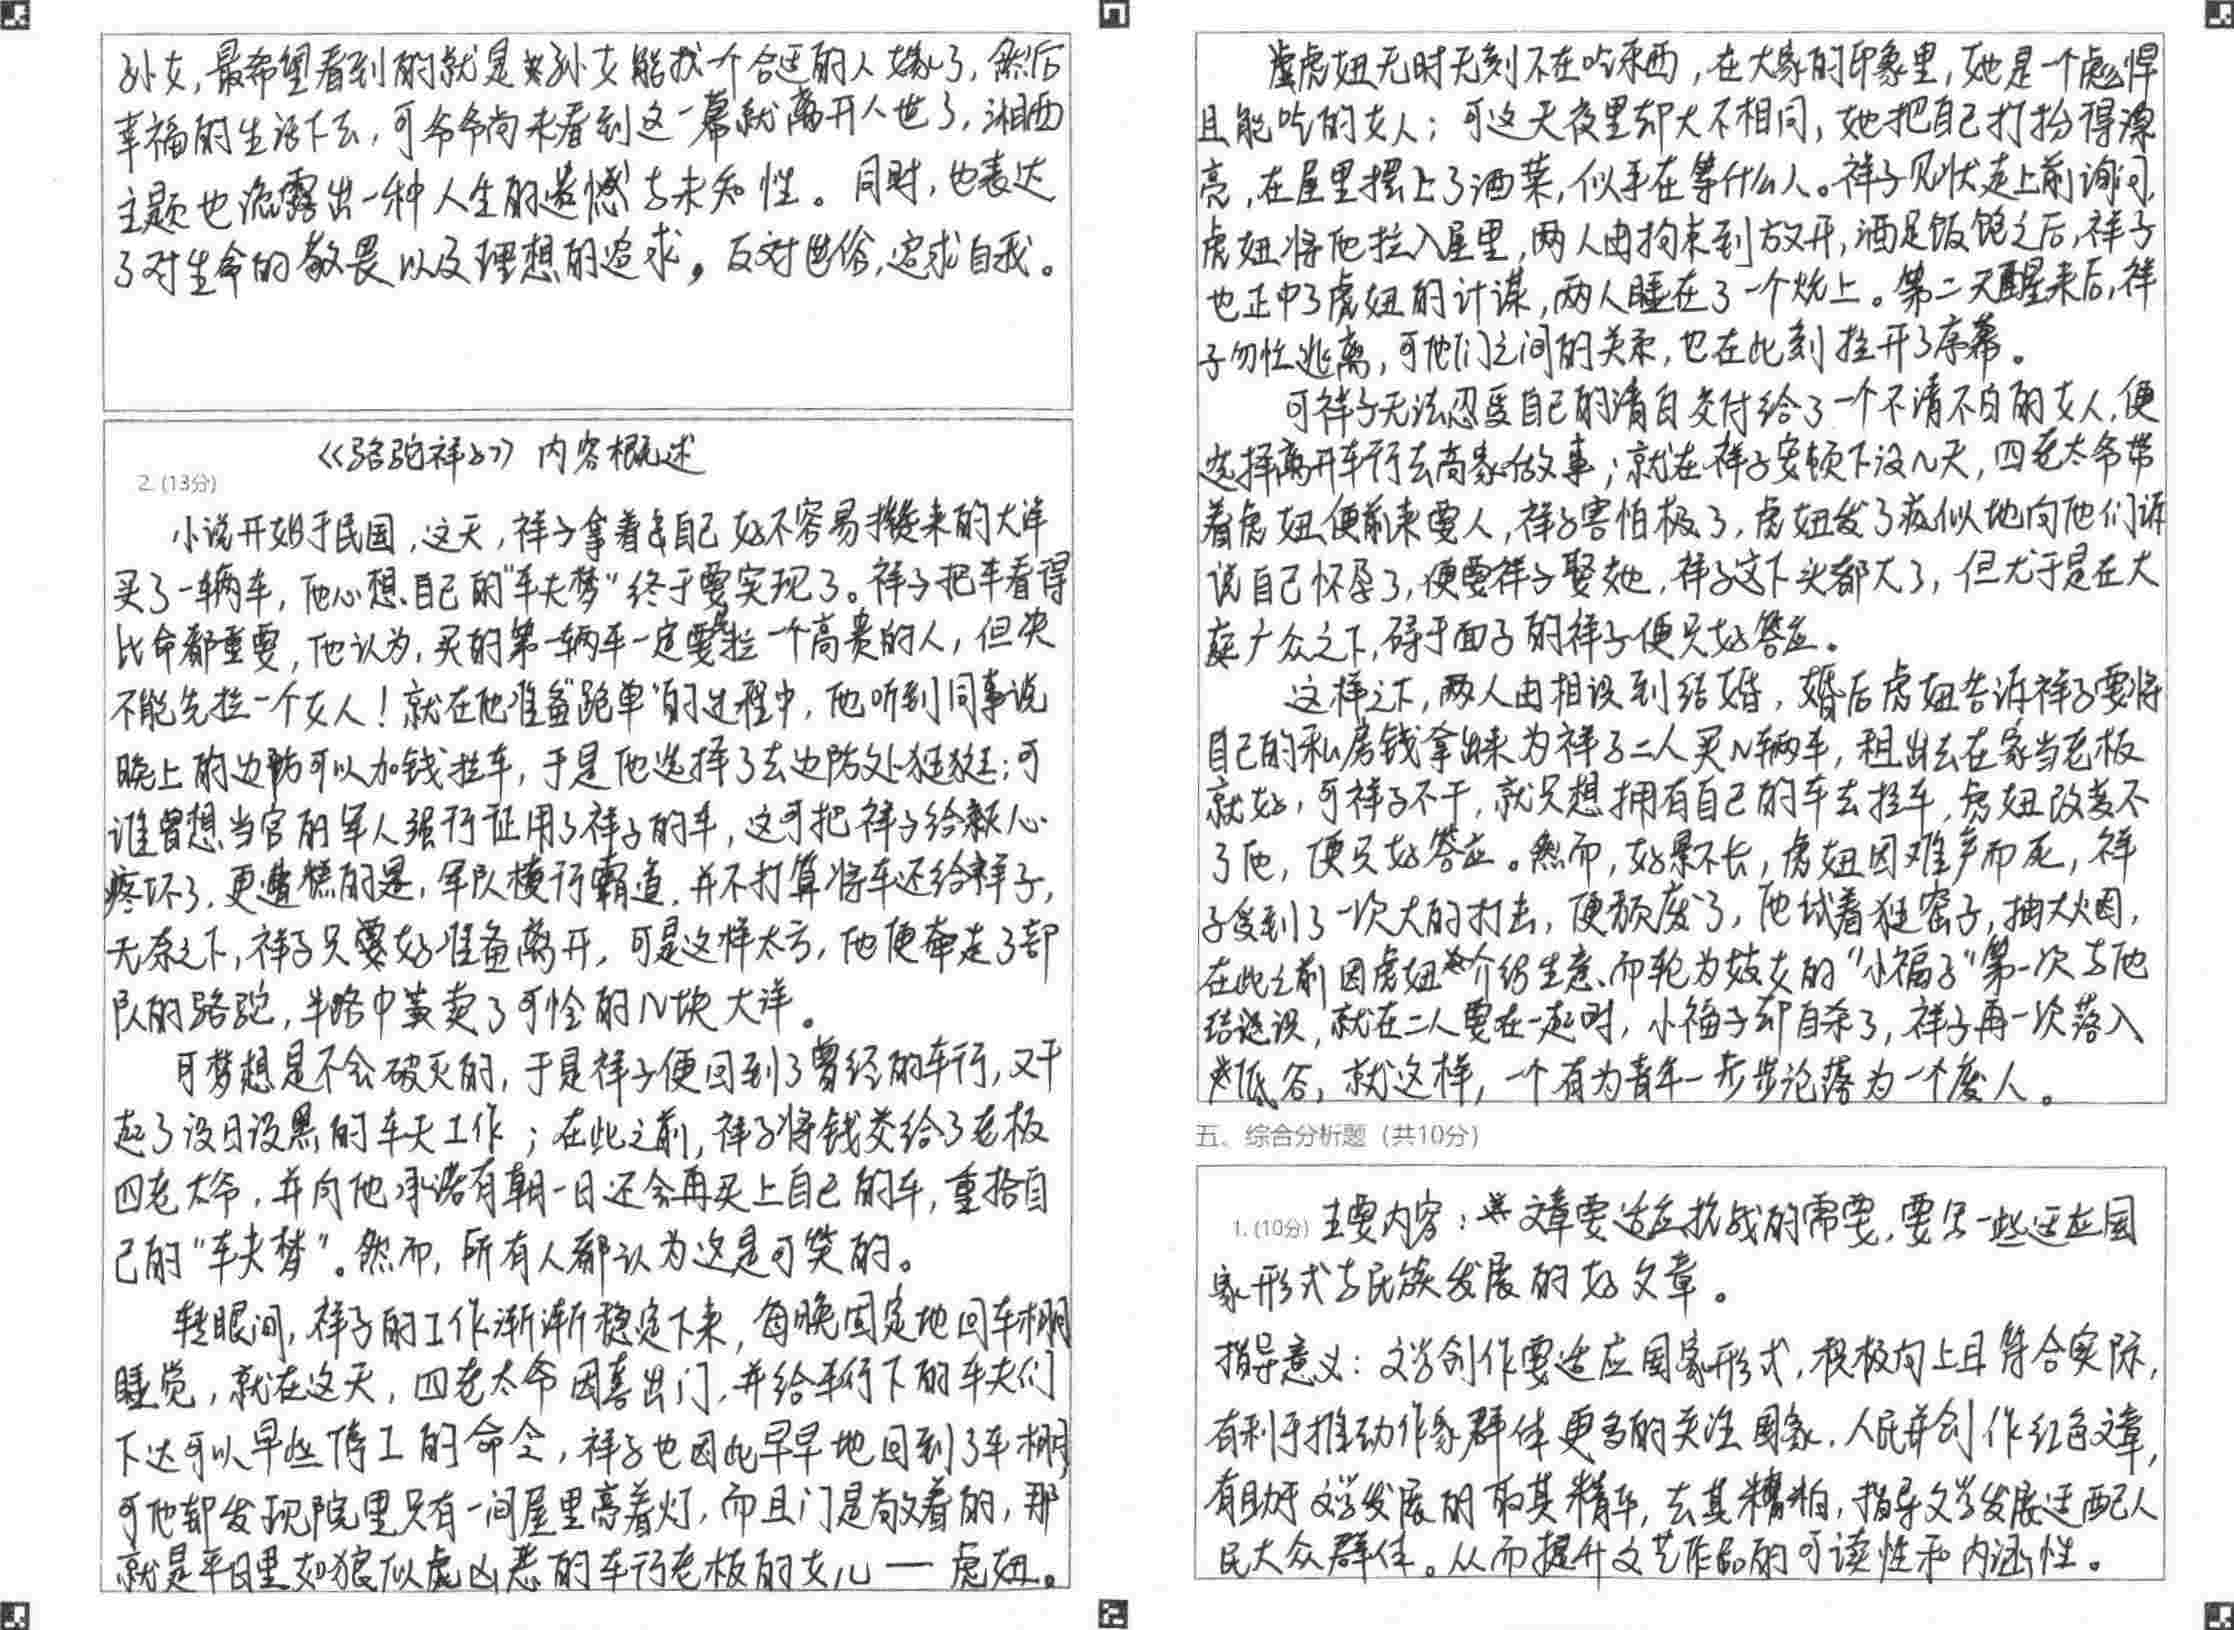 孙女，最希望看到的就是孙女能找一个合适的人嫁了，然后
幸福的生活下去，可爷爷尚未看到这一幕就离开人世了，湘西
主题也流露出一种人生的遗憾与未知性。同时，也表达
了对生命的敬畏以及理想的追求，反对世俗，追求自我。
《骆驼祥子》内容概述
2. (13分)
小说开始于民国，这天，祥子拿着自己好不容易攒来的大洋
买了一辆车，他心想自己的“车夫梦”终于要实现了。祥子把车看得
比命都重要，他认为，买的第一辆车一定要拉一个高贵的人，但决
不能先拉一个女人！就在他准备“跑单”的过程中，他听到同事说
晚上的边防可以加钱拉车，于是他选择了去边防处逛逛；可
谁曾想当官的军人强行征用了祥子的车，这可把祥子给心
疼坏了，更遭糕的是，军队横行霸道，并不打算将车还给祥子，
无奈之下，祥子只好准备离开，可是这样太亏，他便牵走了部
队的骆驼，半路中卖了可怜的几块大洋。
可梦想是不会破灭的，于是祥子便回到了曾经的车行，又干
起了没日没黑的车夫工作；在此之前，祥子将钱交给了老板
四老太爷，并向他承诺有朝一日还会再买上自己的车，重拾自
己的“车夫梦”。然而，所有人都认为这是可笑的。
转眼间，祥子的工作渐渐稳定下来，每晚固定地回车棚
睡觉，就在这天，四老太爷因喜出门，并给车行下的车夫们
下达可以早些停工的命令，祥子也因此早早地回到了车棚，
可他却发现院里只有一间屋里亮着灯，而且门是敞着的，那
就是平日里如狼似虎凶恶的车行老板的女儿——虎妞。
虎妞无时无刻不在吃东西，在大家的印象里，她是一个彪悍
且能吃的女人；可这天夜里却大不相同，她把自己打扮得漂
亮，在屋里摆上了酒菜，似乎在等什么人。祥子见状走上前询问，
虎妞将他拉入屋里，两人由拘束到放开，酒足饭饱之后，祥子
也正中了虎妞的计谋，两人睡在了一个炕上。第二天醒来后，祥
子匆忙逃离，可他们之间的关系，也在此刻拉开了序幕。
可祥子无法忍受自己的清白交付给了一个不清不白的女人，便
选择离开车行去高家做事；就在祥子安顿下没几天，四老太爷带
着虎妞便前来要人，祥子害怕极了，虎妞发了疯似地向他们诉
说自己怀孕了，便要祥子娶她，祥子这下头都大了，但尤于是在大
庭广众之下，碍于面子的祥子便只好答应。
这样之下，两人由相识到结婚，婚后虎妞告诉祥子要将
自己的私房钱拿出来为祥子二人买几辆车，租出去在家当老板
就好，可祥子不干，就只想拥有自己的车去拉车，虎妞改变不
了他，便只好答应。然而，好景不长，虎妞因难产而死，祥
子受到了一次大的打击，便颓废了，他试着逛窑子，抽大烟，
在此之前因虎妞介绍生意而轮为妓女的“小福子”第一次与他
结识，就在二人要在一起时，小福子却自杀了，祥子再一次落入
低谷，就这样，一个有为青年一步步沦落为一个废人。
五、综合分析题（共10分）
1. (10分) 主要内容：文章要适应抗战的需要，要写一些适应国
家形式与民族发展的好文章。
指导意义：文学创作要适应国家形式，积极向上且符合实际，
有利于推动作家群体更多的关注国家、人民并创作红色文章，
有助于文学发展的取其精华，去其糟粕，指导文学发展适配人
民大众群体。从而提升文艺作品的可读性和内涵性。